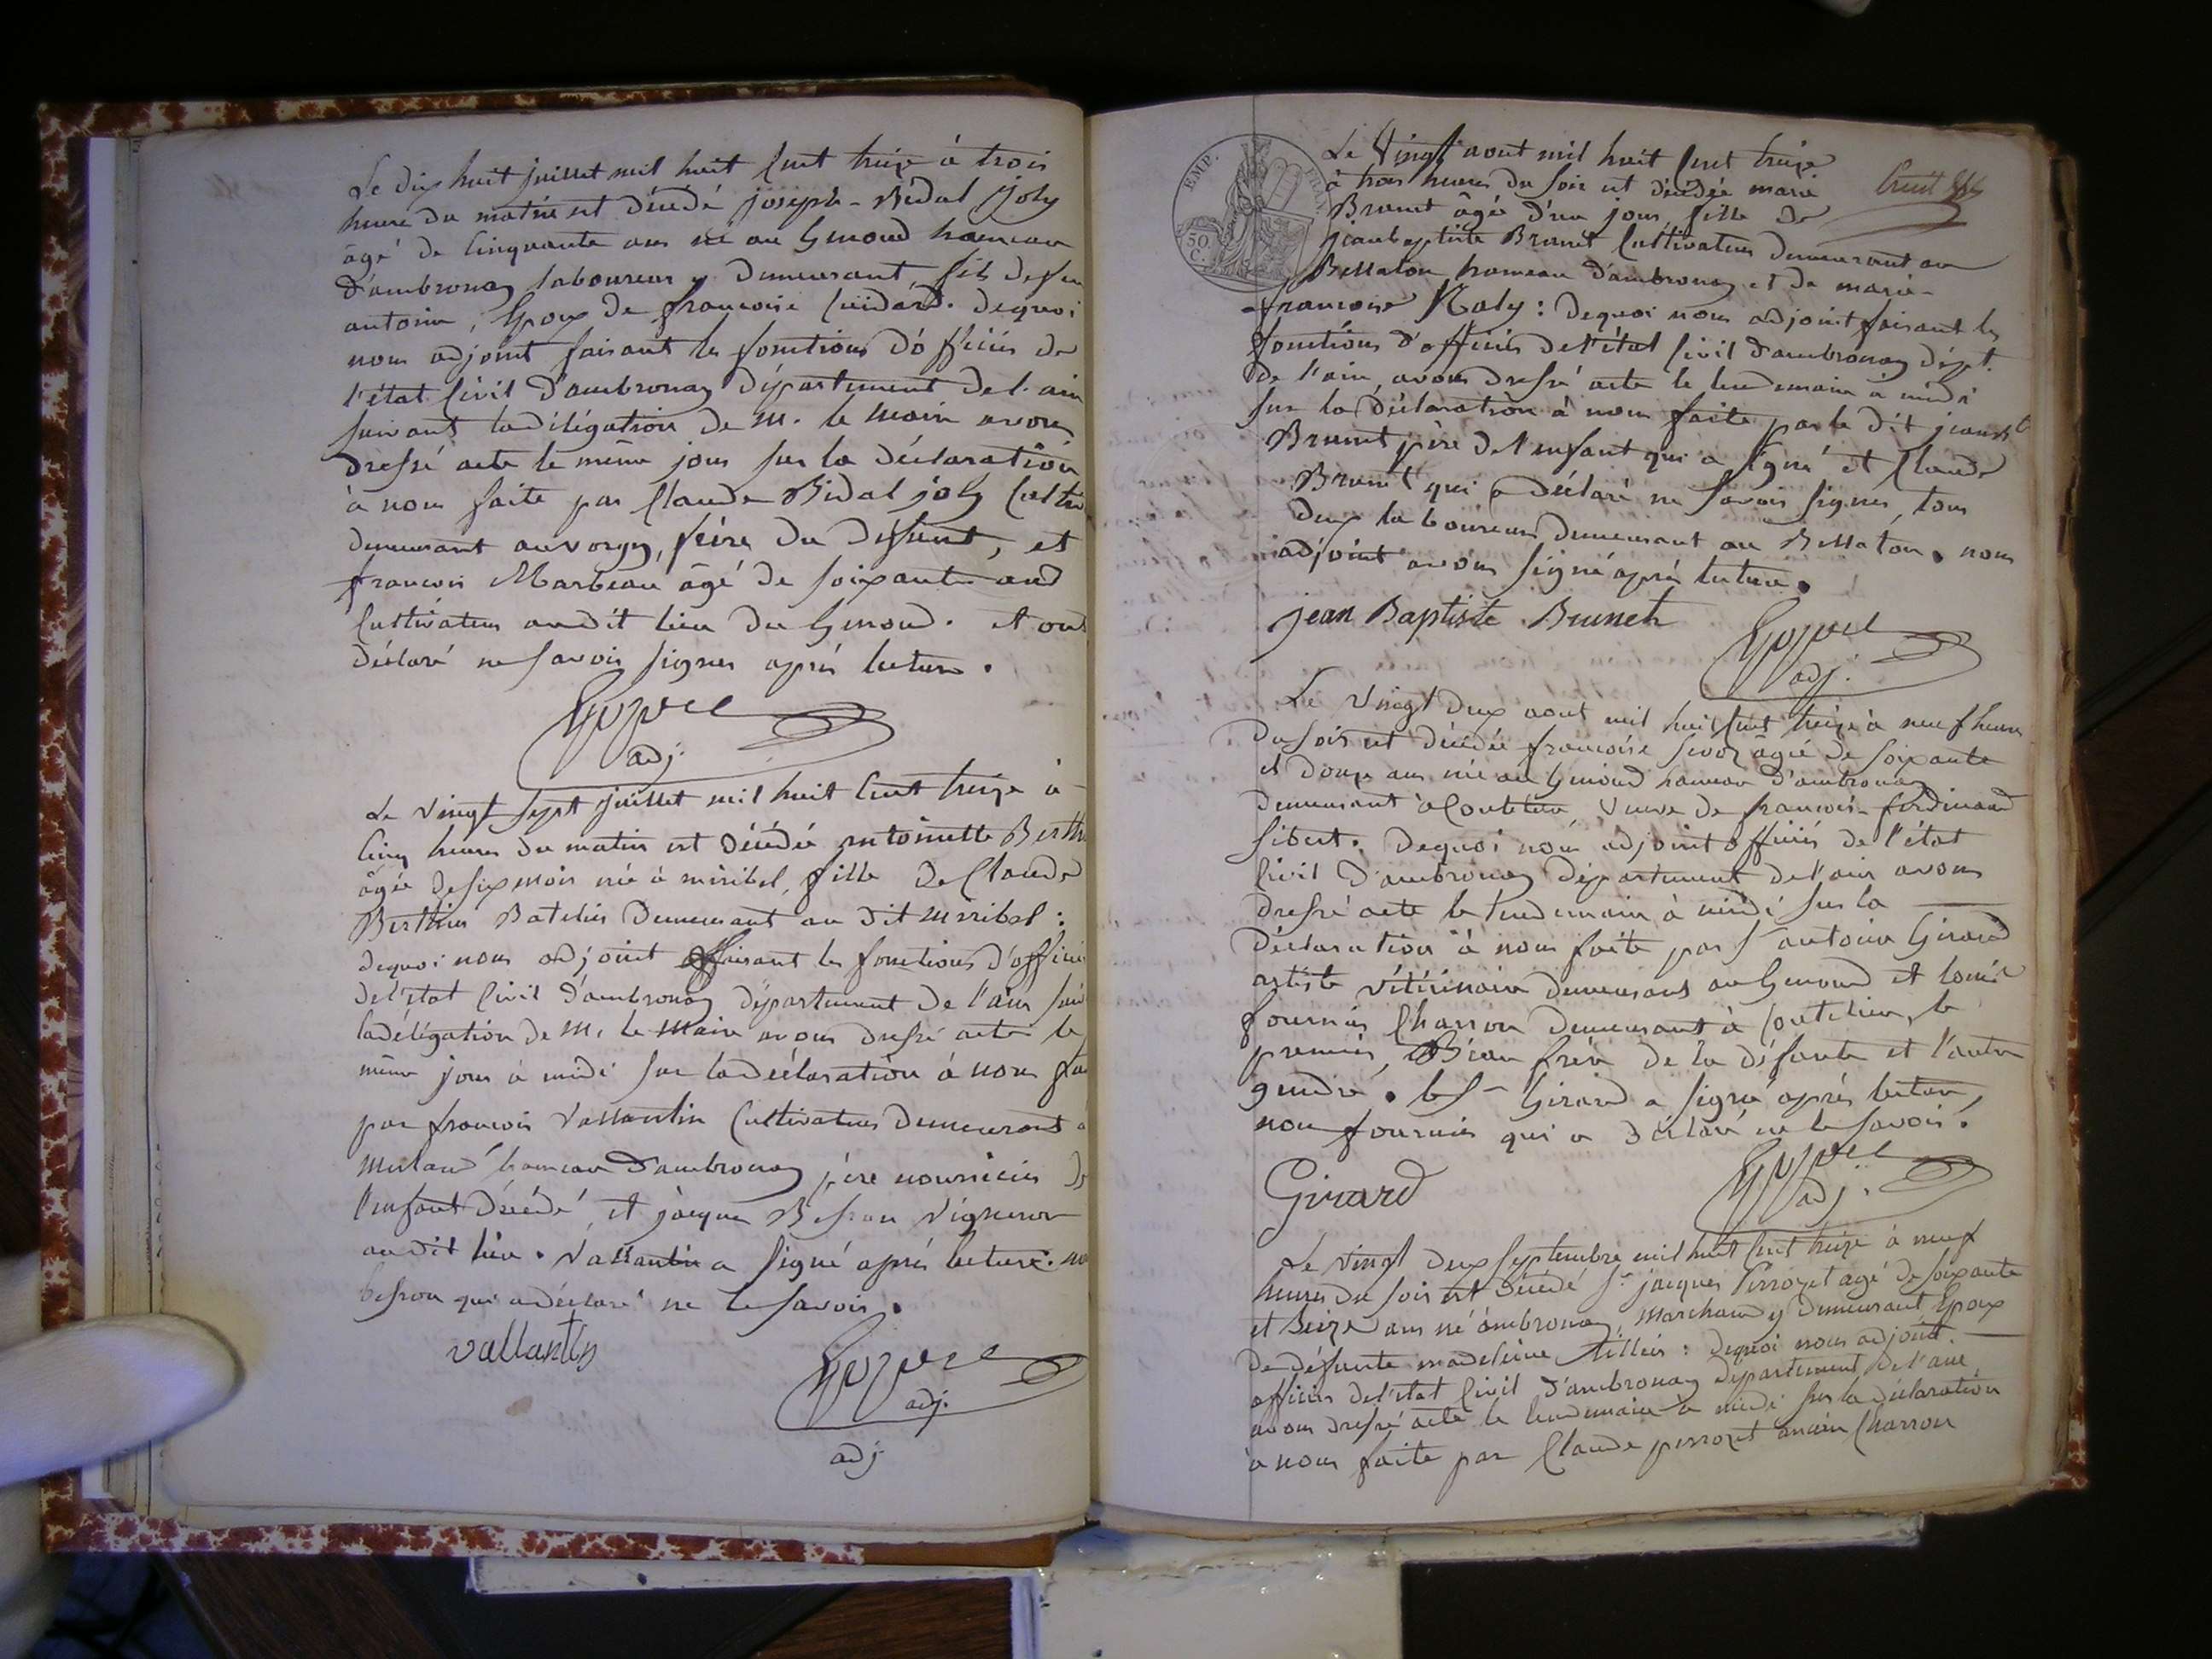 Le dix huit juillet mil huit Cent treize à trois
heure du matin est décédé joseph-Vidal joly
âgé de Cinquante ans né au Genoud hameau
d'ambronay laboureur y demeurant, fils de feu
antoine, Epoux de francoise Cuidard. dequoi
nous adjoint faisant les fonctions d'officier de
l'état Civil d'ambronay département de l'ain
suivant la délégation de M. le Maire avons
dressé acte le même jour sur la déclaration
à nous faite par Claude Vidal joly Cultiv
demeurant auvorgey, frère du defunt, et
francois Marbeau âgé de soixante ans
Cultivateur audit lieu du Genoud. et ont
déclaré ne savoir signer après lecture.
adj.
Le vingt sept juillet mil huit Cent treize à
Cinq heures du matin est décédée antoinette Berth
âgée de six mois née à miribel, fille de Claude
Berthier Batelier demeurant au dit Miribel :
dequoi nous adjoint faisant les fonctions d'offici
de l'état Civil d'ambronay département de l'ain sui
la délégation de M. le Maire avons dressé acte le
même jour à midi sur la déclaration à nous fa
par francois Vallantin Cultivateur demeurant à
Merland hameau d'ambronay père nourricier de
l'enfant décédé, et jacque Besson Vigneron
audit lieu. Vallantin a signé après lecture. no
besson qui a déclaré ne le savoir.
vallantin
adj.
adj
EMP. FRAN.
50 C.
Le Vingt aout mil huit Cent treize
à trois heures du soir est décédée marie
Brunet âgée d'un jour, fille de
jeanbaptiste Brunet Cultivateur demeurant au
Bellaton hameau d'ambronay et de marie
francoise Naly : dequoi nous adjoint faisant les
fonctions d'officier de l'état Civil d'ambronay dépt.
de l'ain, avons dressé acte le lendemain à midi
sur la déclaration à nous faite par le dit jean bte
Brunet père de l'enfant qui a signé et Claude
Brunet qui a déclaré ne savoir signer, tous
deux laboureurs demeurant au Bellaton. nous
adjoint avons signé après lecture.
jean Baptiste Brunet
adj.
Le vingt deux aout mil huit Cent treize à neuf heures
du soir est décédée francoise sevoz âgée de soixante
et douze ans née au Genoud hameau d'ambronay
demeurant à Coutelieu veuve de francois-ferdinand
sibert. dequoi nous adjoint officier de l'état
Civil d'ambronay département de l'ain avons
dressé acte le lendemain à midi sur la
déclaration à nous faite par sr antoine Girard
artiste vétérinaire demeurant au Genoud et louis
fournier Charron demeurant à Coutelieu, le
premier, Beau frère de la défunte et l'autre
gendre. le sr Girard a signé après lecture,
non fournier qui a déclaré ne le savoir.
Girard
adj.
Le vingt deux septembre mil huit Cent treize à neuf
heures du soir est décédé sr jacques Perrozet agé de soixante
et seize ans né ambronay, Marchand y demeurant Epoux
de défunte madeleine tillier : dequoi nous adjoint.
officier de l'état Civil d'ambronay département de l'ain
avons dressé acte le lendemain à midi sur la déclaration
à nous faite par Claude perrozet ancien Charron